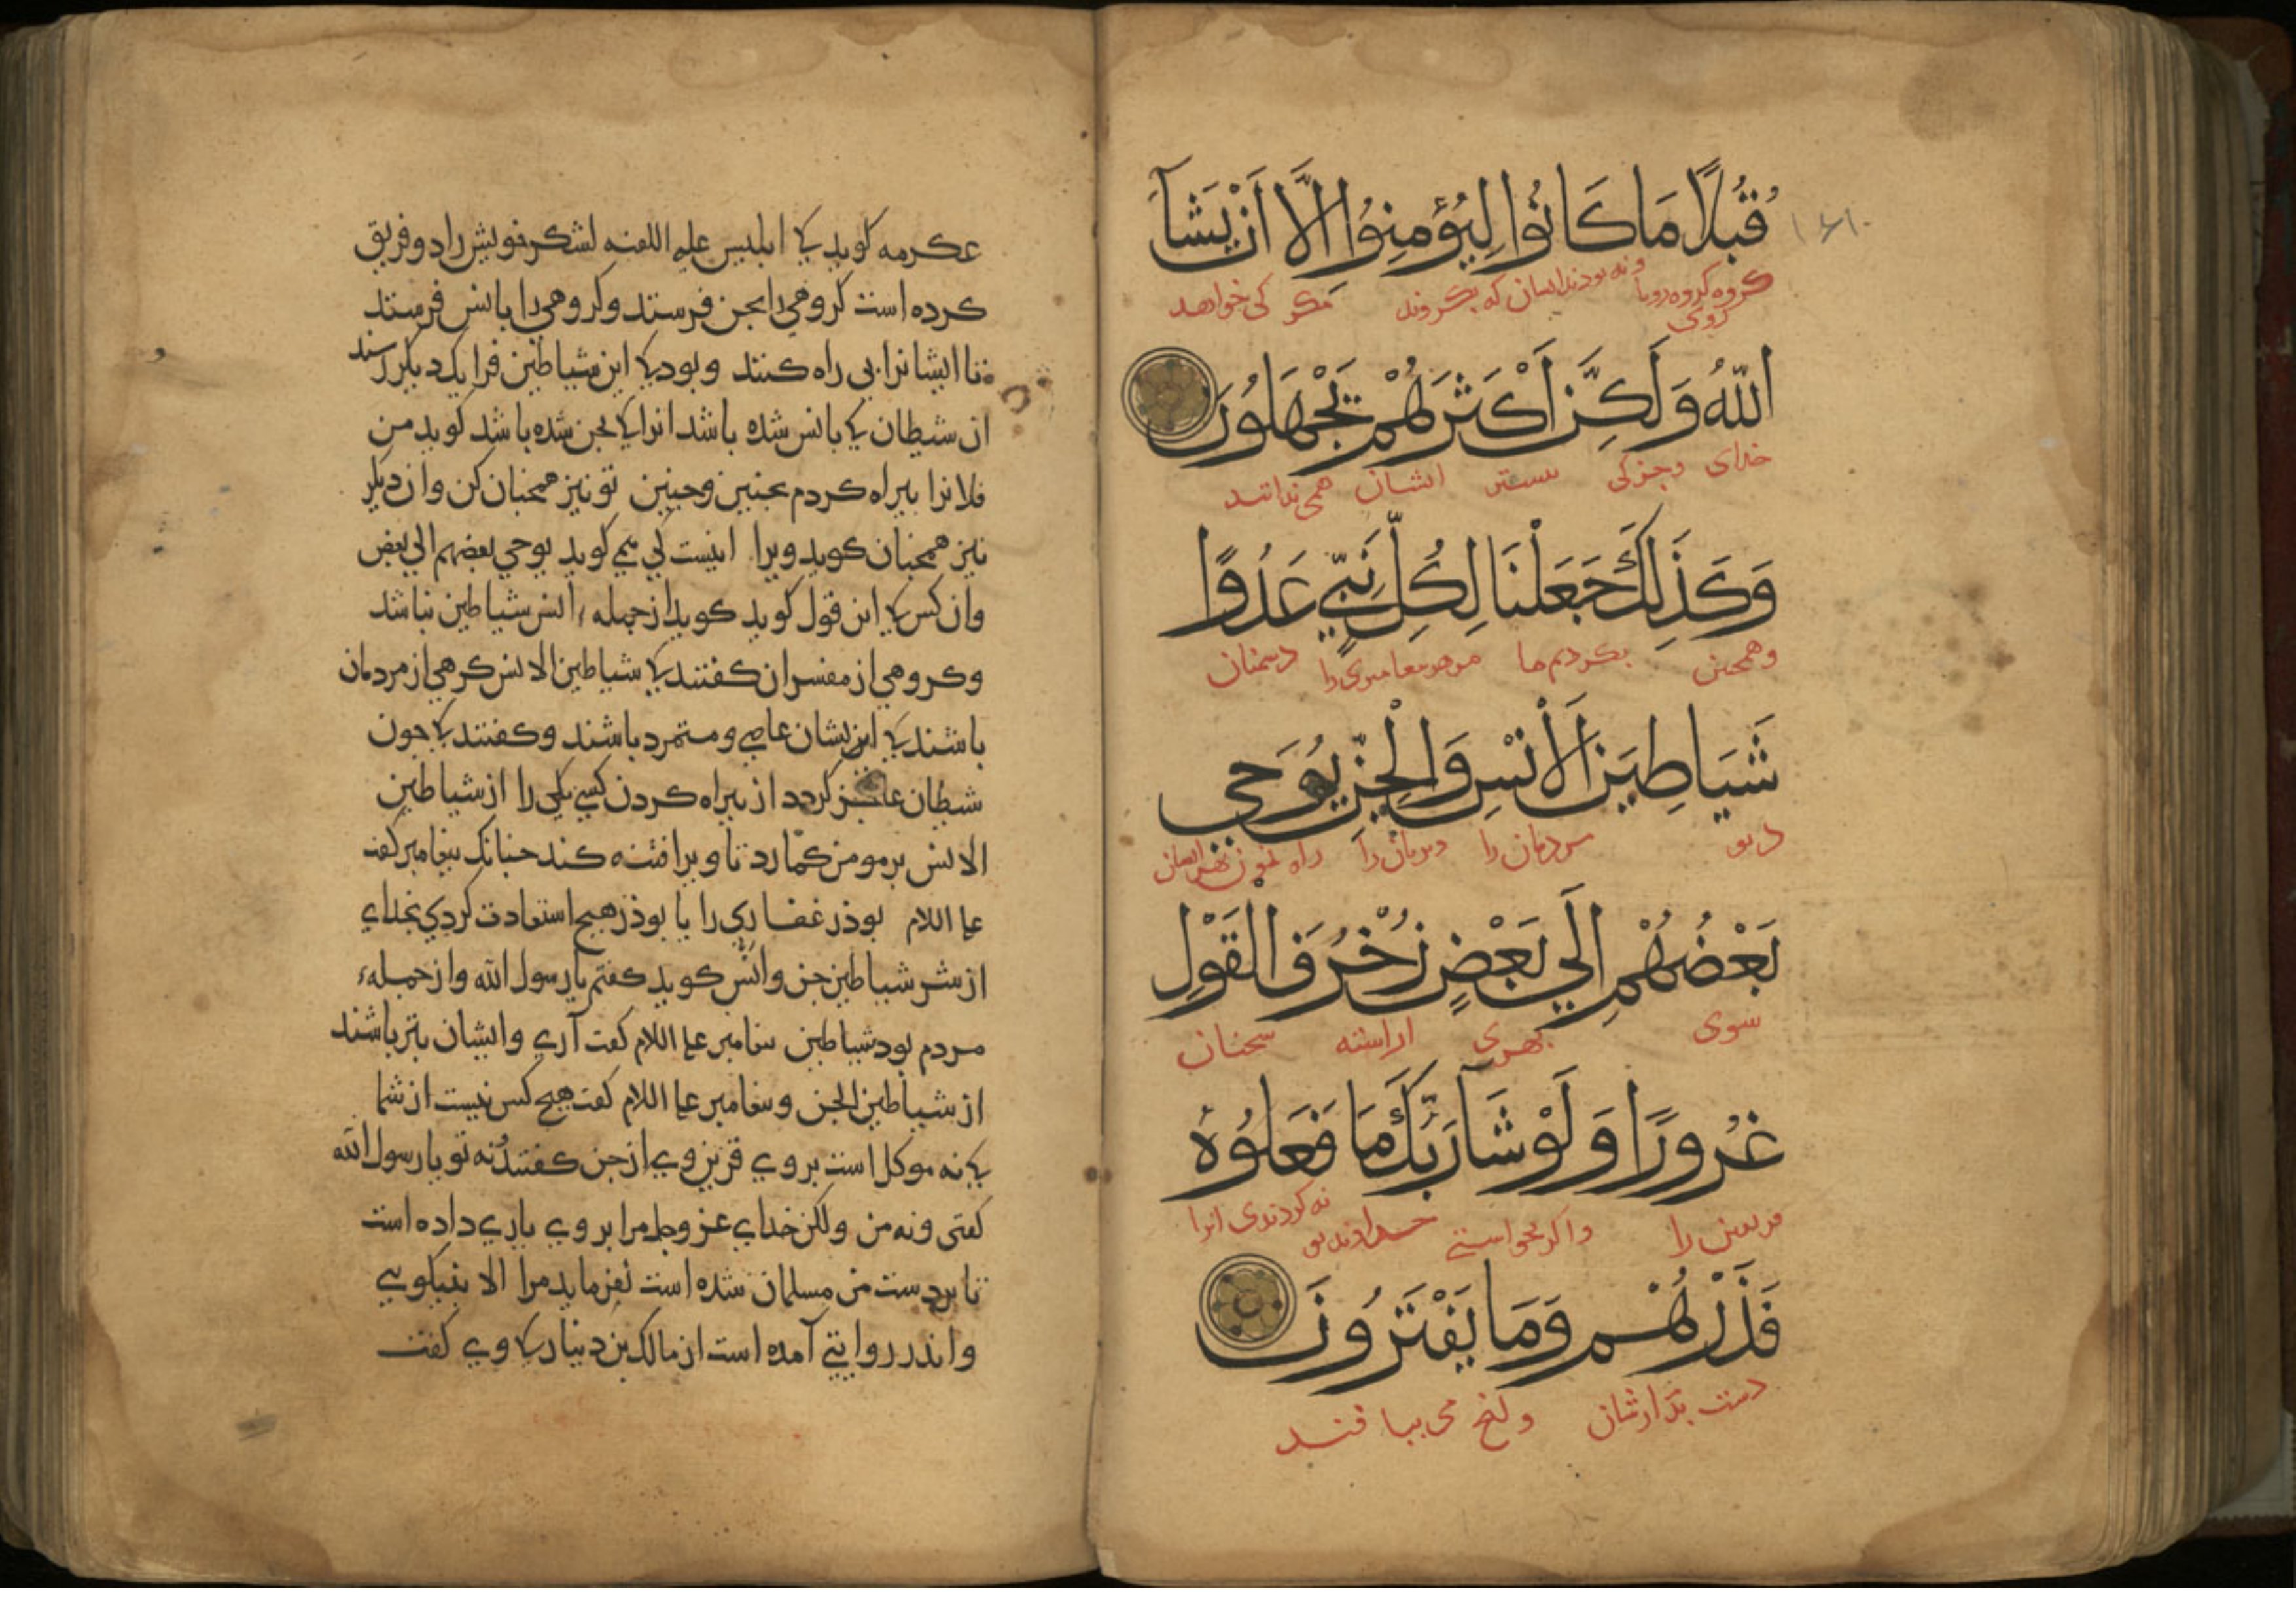 قُبُلًا مَا كَانُوا لِيُؤْمِنُوا إِلَّا أَنْ يَشَآءَ
کروه کروه رویا روی ونه بودند ایشان که بکروند مکر کی خواهد
اللّٰهُ وَلَكِنَّ أَكْثَرَهُمْ يَجْهَلُونَ
خدای وجز کی بیستر ایشان همی ندانند
وَكَذَلِكَ جَعَلْنَا لِكُلِّ نَبِيٍّ عَدُوًّا
وهمچنین بکردیم ما مر هر پیغامبری را دشمنان
شَيَاطِينَ الْأِنْسِ وَالْجِنِّ يُوحِي
دیو مردمان را وپریان را راه نمون
بَعْضُهُمْ إِلَي بَعْضٍ زُخْرُفَ الْقَوْلِ
سوی بهری اراسته سخنان
غُرُورًا وَلَوْ شَآ رَبُّكَ مَا فَعَلُوهُ
فریفتن را واکر بخواستی خداوند تو نه کردندی انرا
فَذَرْهُمْ وَمَا يَفْتَرُونَ
دست بدارشان می ببافند
عکرمه کوید کی ابلیس علیه اللعنه لشکر خویش را دو فریق
کرده است کروهی را بجن فرستد وکروهی را بانس فرستد
تا ایشانرا بی راه کنند وبود کی این شیاطین فرا یک دیکر رسند
ان شیطان کی بانس شده باشد انرا کی بجن شده باشد کوید من
فلانرا بیراه کردم بچنین وچنین تو نیز همچنان کن وان دیکر
نیز همچنان کوید ویرا اینست کی می کوید یوحي بعضهم الي بعض
وان کس کی این قول کوید کوید از جمله انس شیاطین نباشد
وکروهی از مفسران کفتند کی شیاطین الانس کرهی از مردمان
باشند کی ایشان عاصی ومتمرد باشند وکفتند کی چون
شیطان عاجز کردد از بیراه کردن کسی یکی را از شیاطین
الانس بر مومن کمارد تا ویرا فتنه کند چنانک پیغامبر کفت
علیه السلام بوذر غفاری را یا بوذر هیچ استعاذت کردی بخدای
از شر شیاطین جن وانس کوید کفتم یا رسول الله واز جمله
مردم بود شیاطین پیغامبر علیه السلام کفت آری وایشان بتر باشند
از شیاطین الجن وپیغامبر علیه السلام کفت هیچ کس نیست از شما
کی نه موکل است بر وی قرین وی از جن کفتند نه تو یا رسول الله
کفتی ونه من ولکن خدای عز وجل مرا بر وی یاری داده است
تا بر دست من مسلمان شده است نفرماید مرا الا بنیکویی
واندر روایتی آمده است از مالک بن دینار کی وی کفت